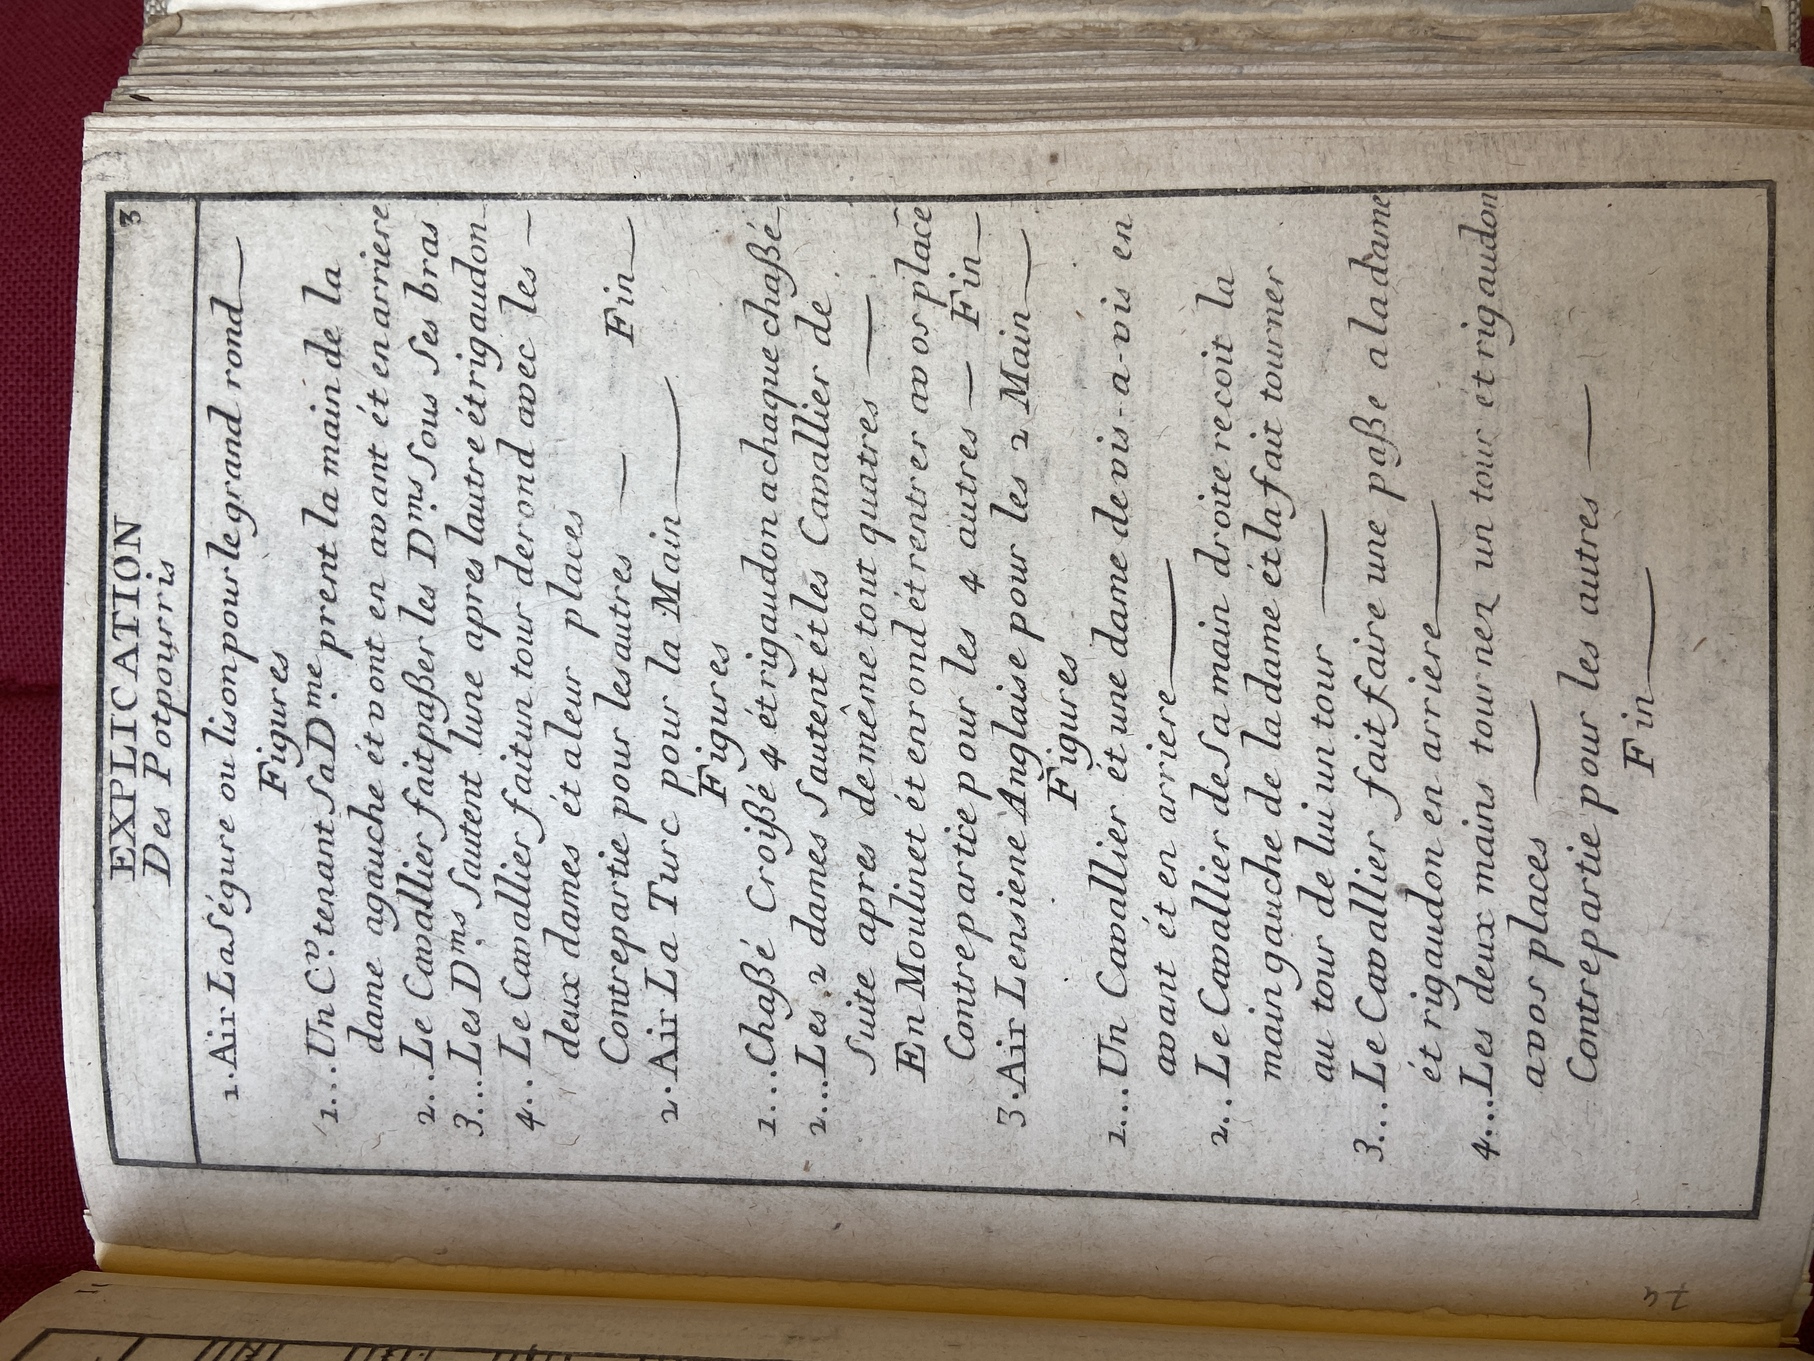 EXPLICATION
3
Des Potpourris
1. Air LaSégure ou lison pour le grand rond
Figures
1... Un C.vr tenant SaD.me prent la main de la
dame agauche ét vont en avant ét en arriere
2... Le Cavallier fait paßer les D.ms Sous Ses bras
3... Les D.ms Sautent lune apres lautre ét rigaudon
4... Le Cavallier fait un tour derond avec les
deux dames ét aleur places
Contrepartie pour les autres Fin
2. Air La Turc pour la Main
Figures
1... Chaßé Croißé 4 ét rigaudon achaque chaßé
2... Les 2 dames Sautent ét les Cavallier de
Suite apres demême tout quatres
En Moulinet ét enrond ét rentrer avos place
Contrepartie pour les 4 autres Fin
3. Air Lensiene Anglaise pour les 2 Main
Figures
1... Un Cavallier ét une dame de vis-a-vis en
avant ét en arriere
2... Le Cavallier deSa main droite recoit la
main gauche de la dame ét la fait tourner
au tour de lui un tour
3... Le Cavallier fait faire une paße a la dame
ét rigaudon en arriere
4... Les deux mains tournez un tour ét rigaudon
avos places
Contrepartie pour les autres
Fin
74
1